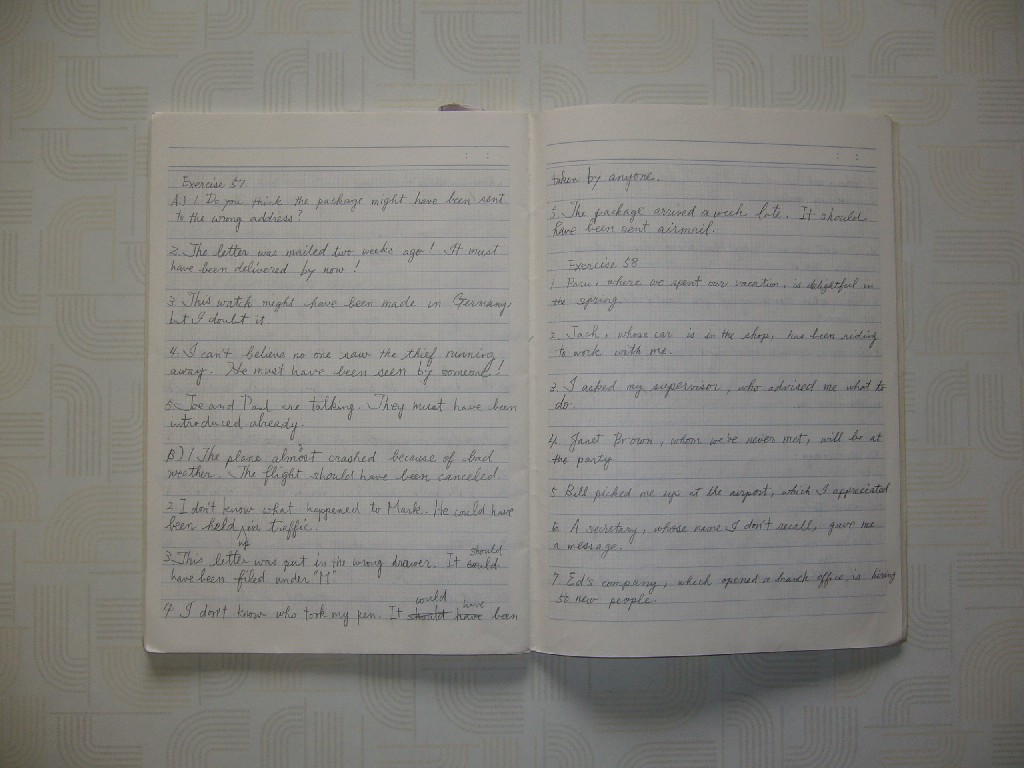 Exercise 57
A) 1. Do you think the package might have been sent
to the wrong address?
2. The letter was mailed two weeks ago! It must
have been delivered by now!
3. This watch might have been made in Germany,
but I doubt it.
4. I can't believe no one saw the thief running
away. He must have been seen by someone!
5. Joe and Paul are talking. They must have been
introduced already.
B) 1. The plane almost crashed because of bad
weather. The flight should have been canceled.
2. I don't know what happened to Mark. He could have
been held up in traffic.
3. This letter was put in the wrong drawer. It should
have been filed under "M"
4. I don't know who took my pen. It could have been
taken by anyone.
5. The package arrived a week late. It should
have been sent airmail.
Exercise 58
1. , where we spent our vacation, is delightful in
the spring.
2. Jack, whose car is in the shop, has been riding
to work with me.
3. I asked my supervisor, who advised me what to
do.
4. Janet Brown, whom we've never met, will be at
the party
5. Bill picked me up at the airport, which I appreciated
6. A secretary, whose name I don't recall, gave me
a message.
7. Ed's company, which opened a branch office, is hiring
50 new people.